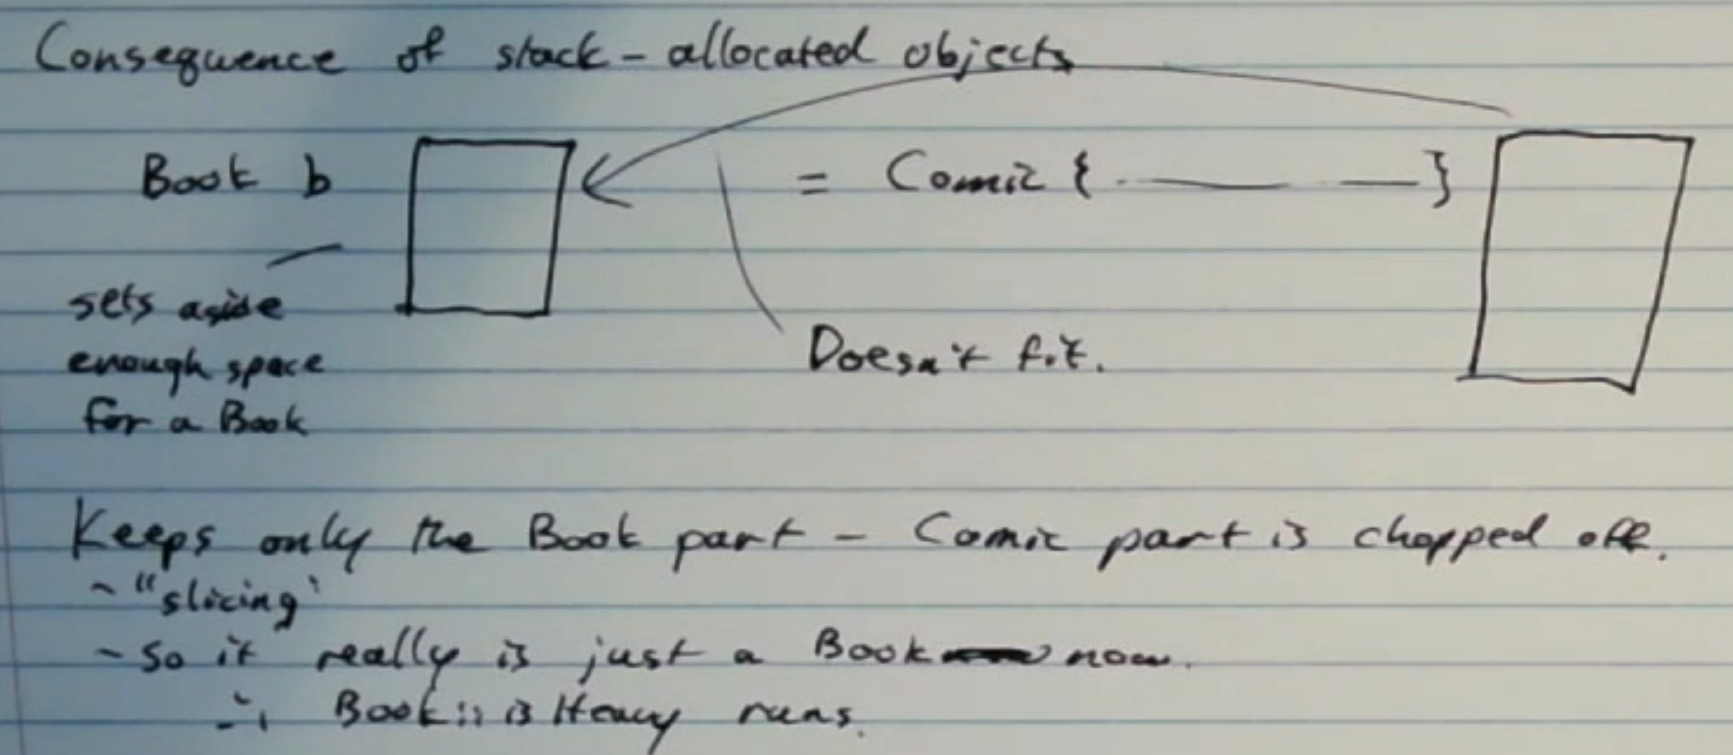 Consequence of stack-allocated objects
Book b = Comic { ... }
sets aside
enough space
for a Book
Doesn't fit.
Keeps only the Book part - Comic part is chopped off.
- "slicing"
- So it really is just a Book now.
∴ Book::isHeavy runs.